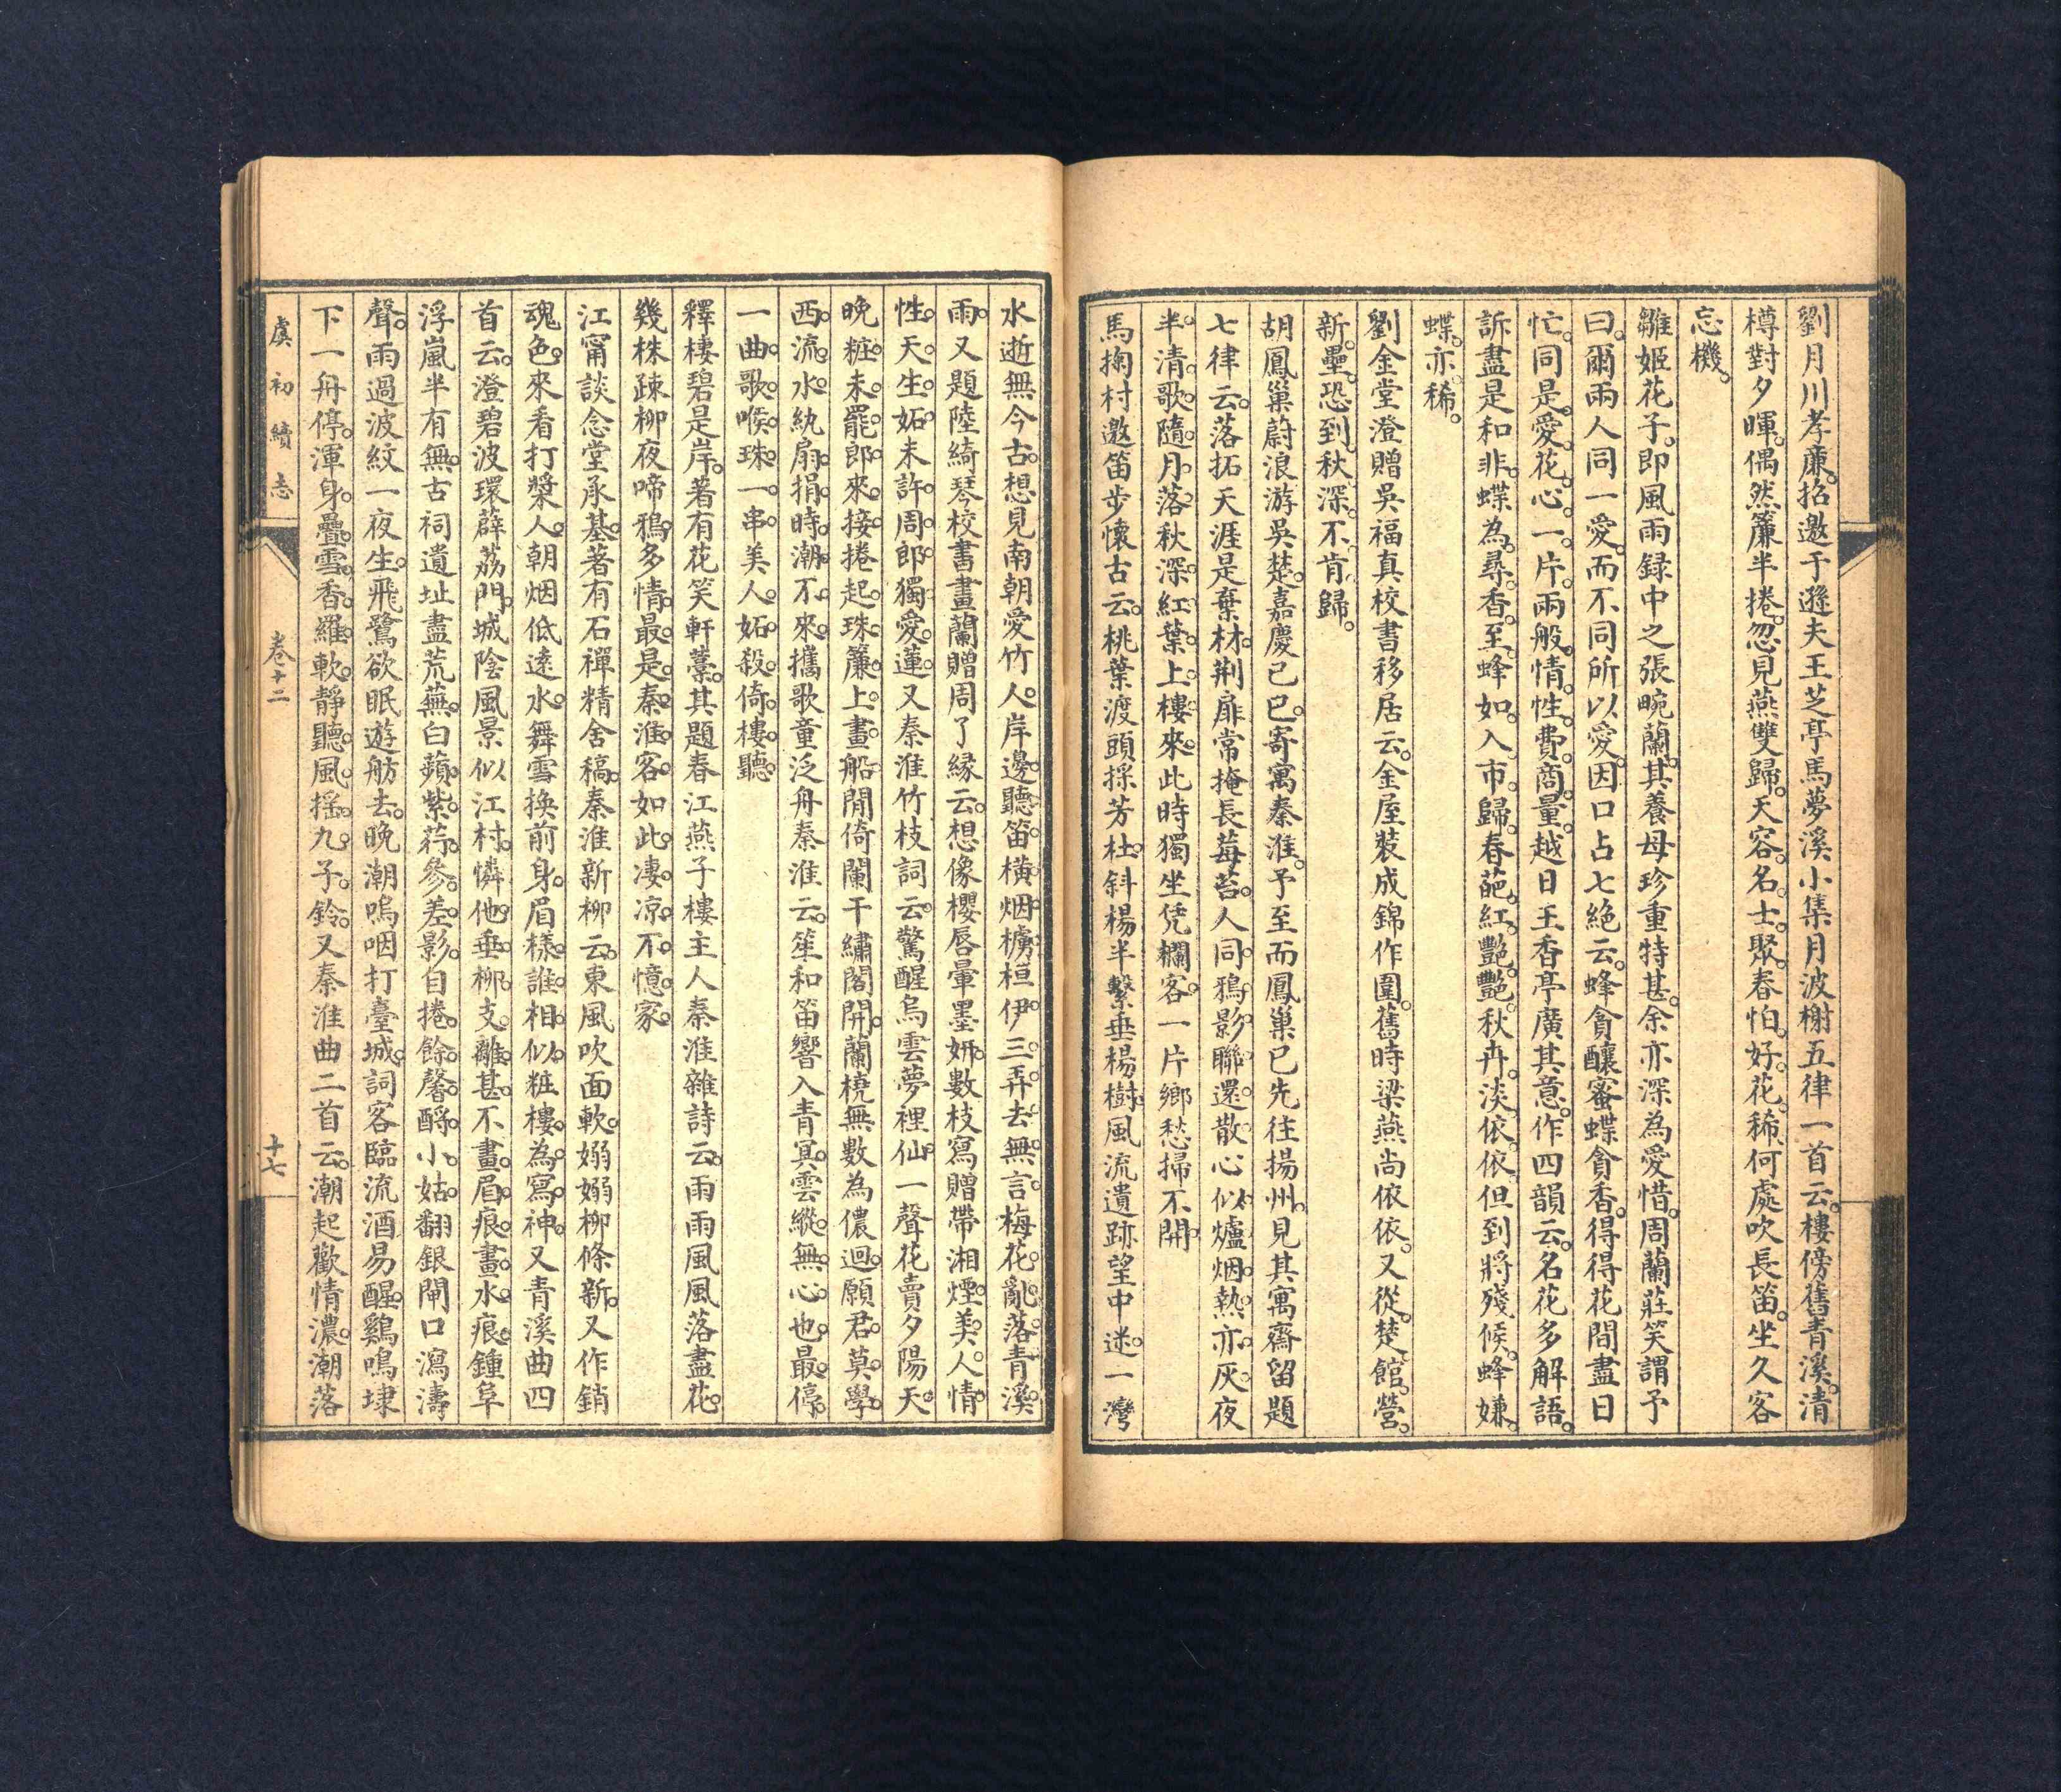 劉月川孝廉。招邀于遜夫王芝亭馬夢溪小集月波榭五律一首云。樓傍舊青溪。清
樽對夕暉。偶然簾半捲。忽見燕雙歸。天容名士聚。春怕好花稀。何處吹長笛。坐久客
忘機。
雛姬花子。即風雨録中之張畹蘭。其養母珍重特甚。余亦深為愛惜。周蘭莊笑謂予
曰。爾兩人同一愛。而不同所以愛。因口占七絶云。蜂貪釀蜜蝶貪香。得得花間盡日
忙。同是愛花心一片。兩般情性費商量。越日王香亭廣其意。作四韻云。名花多解語。
訴盡是和非。蝶為尋香至。蜂如入市歸。春葩紅艷艷。秋卉淡依依。但到將殘候。蜂嫌
蝶亦稀。
劉金堂澄贈吳福真校書移居云。金屋裝成錦作圍。舊時梁燕尚依依。又從楚館營
新壘。恐到秋深不肯歸。
胡鳳巢蔚浪游吳楚。嘉慶己巳。寄寓秦淮。予至而鳳巢已先往揚州。見其寓齋留題
七律云。落拓天涯是棄材。荆扉常掩長莓苔。人同鴉影聯還散。心似爐烟熱亦灰。夜
半清歌隨月落。秋深紅葉上樓來。此時獨坐凭欄客。一片鄉愁掃不開。
馬掬村邀笛步懷古云。桃葉渡頭採芳杜。斜楊半繫垂楊樹。風流遺跡望中迷。一灣
水逝無今古。想見南朝愛竹人。岸邊聽笛橫烟櫋。桓伊三弄去無言。梅花亂落青溪
雨。又題陸綺琴校書畫蘭贈周了緣云。想像櫻唇暈墨妍。數枝寫贈帶湘煙。美人情
性天生妬。未許周郎獨愛蓮。又秦淮竹枝詞云。驚醒烏雲夢裡仙。一聲花賣夕陽天。
晚粧未罷郎來接。捲起珠簾上畫船。閒倚闌干繡閣開。蘭橈無數為儂迴。願君莫學
西流水。紈扇捐時潮不來。攜歌童泛舟秦淮云。笙和笛響入青冥。雲縱無心也最停。
一曲歌喉珠一串。美人妬殺倚樓聽。
釋棲碧是岸。著有花笑軒藁。其題春江燕子樓主人秦淮雜詩云。雨雨風風落盡花。
幾株疎柳夜啼鴉。多情最是秦淮客。如此凄凉不憶家。
江甯談念堂承基。著有石禪精舍稿。秦淮新柳云。東風吹面軟。嫋嫋柳條新。又作銷
魂色。來看打槳人。朝烟低遠水。舞雪換前身。眉樣誰相似。粧樓為寫神。又青溪曲四
首云。澄碧波環薜荔門。城陰風景似江村。憐他垂柳支離甚。不畫眉痕畫水痕。鍾阜
浮嵐半有無。古祠遺址盡荒蕪。白蘋紫荇參差影。自捲餘馨酹小姑。翻銀閘口瀉濤
聲。雨過波紋一夜生。飛鷺欲眠遊舫去。晚潮嗚咽打臺城。詞客臨流酒易醒。鷄鳴埭
下一舟停。渾身疊雪香羅軟。靜聽風搖九子鈴。又秦淮曲二首云。潮起歡情濃。潮落
虞初續志
卷十二
十七